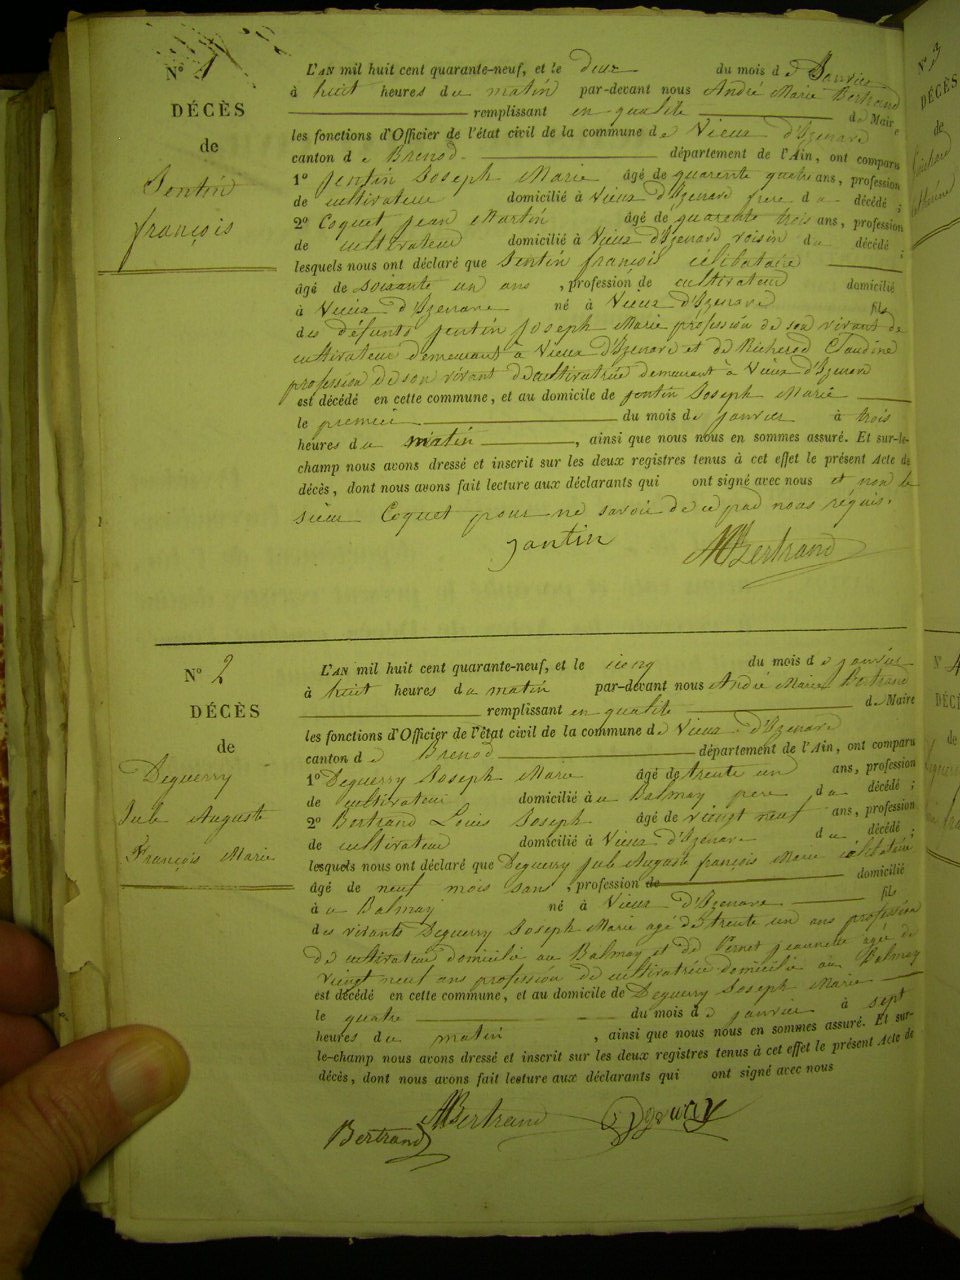 N° 1
DÉCÈS
de
Jentin
françois
L'AN mil huit cent quarante-neuf, et le deux du mois de Janvier
à huit heures du matin par-devant nous André Marie Bertrand
remplissant en qualité de Maire
les fonctions d'Officier de l'état civil de la commune de Vieux d'Izenave
canton de Brenod département de l'Ain, ont comparu
1° Jentin Joseph Marie âgé de quarente quatre ans, profession
de cultivateur domicilié à Vieux d'Izenave frere du décédé ;
2° Coquet jean Martin âgé de quarente trois ans, profession
de cultivateur domicilié à Vieux d'Izenave voisin du décédé ;
lesquels nous ont déclaré que Jentin françois célibataire
âgé de soixante un ans , profession de cultivateur domicilié
à Vieux d'Izenave né à Vieux d'Izenave fils
des défunts jentin Joseph Marie profession de son vivant de
cultivateur demeurant à Vieux d'Izenave et de Richerod Claudine
profession de son vivant de cultivatrice demeurant à Vieux d'Izenave
est décédé en cette commune, et au domicile de jentin Joseph Marie
le premier du mois de janvier à trois
heures du matin , ainsi que nous nous en sommes assuré. Et sur-le-
champ nous avons dressé et inscrit sur les deux registres tenus à cet effet le présent Acte de
décès, dont nous avons fait lecture aux déclarants qui ont signé avec nous et non le
sieur Coquet pour ne savoir de ce par nous réquis.
jantin AMBertrand
N° 2
DÉCÈS
de
Deguerry
Jule Auguste
François Marie
L'AN mil huit cent quarante-neuf, et le cinq du mois de janvier
à huit heures du matin par-devant nous André Marie Bertrand
remplissant en qualité de Maire
les fonctions d'Officier de l'état civil de la commune de Vieux d'Izenave
canton de Brenod département de l'Ain, ont comparu
1° Deguerry Joseph Marie âgé de trente un ans, profession
de cultivateur domicilié à u Balmay pere du décédé ;
2° Bertrand Louis Joseph âgé de viengt neuf ans, profession
de cultivateur domicilié à Vieux d'Izenave du décédé ;
lesquels nous ont déclaré que Deguerry jule Auguste françois Marie célibataire
âgé de neuf mois sans , profession de domicilié
à u Balmay né à Vieux d'Izenave fils
des vivants Deguerry Joseph Marie agé de trente un ans profession
de cultivateur domicilié au Balmay et de Pernet jeannette agé de
viengt neuf ans profession de cultivatrice domicilié au Balmay
est décédé en cette commune, et au domicile de Deguerry Joseph Marie
le quatre du mois de janvier à sept
heures du matin , ainsi que nous nous en sommes assuré. Et sur-
le-champ nous avons dressé et inscrit sur les deux registres tenus à cet effet le présent Acte de
décès, dont nous avons fait lecture aux déclarants qui ont signé avec nous
Bertrand AMBertrand
N° 3
DÉCÈS
de
N° 4